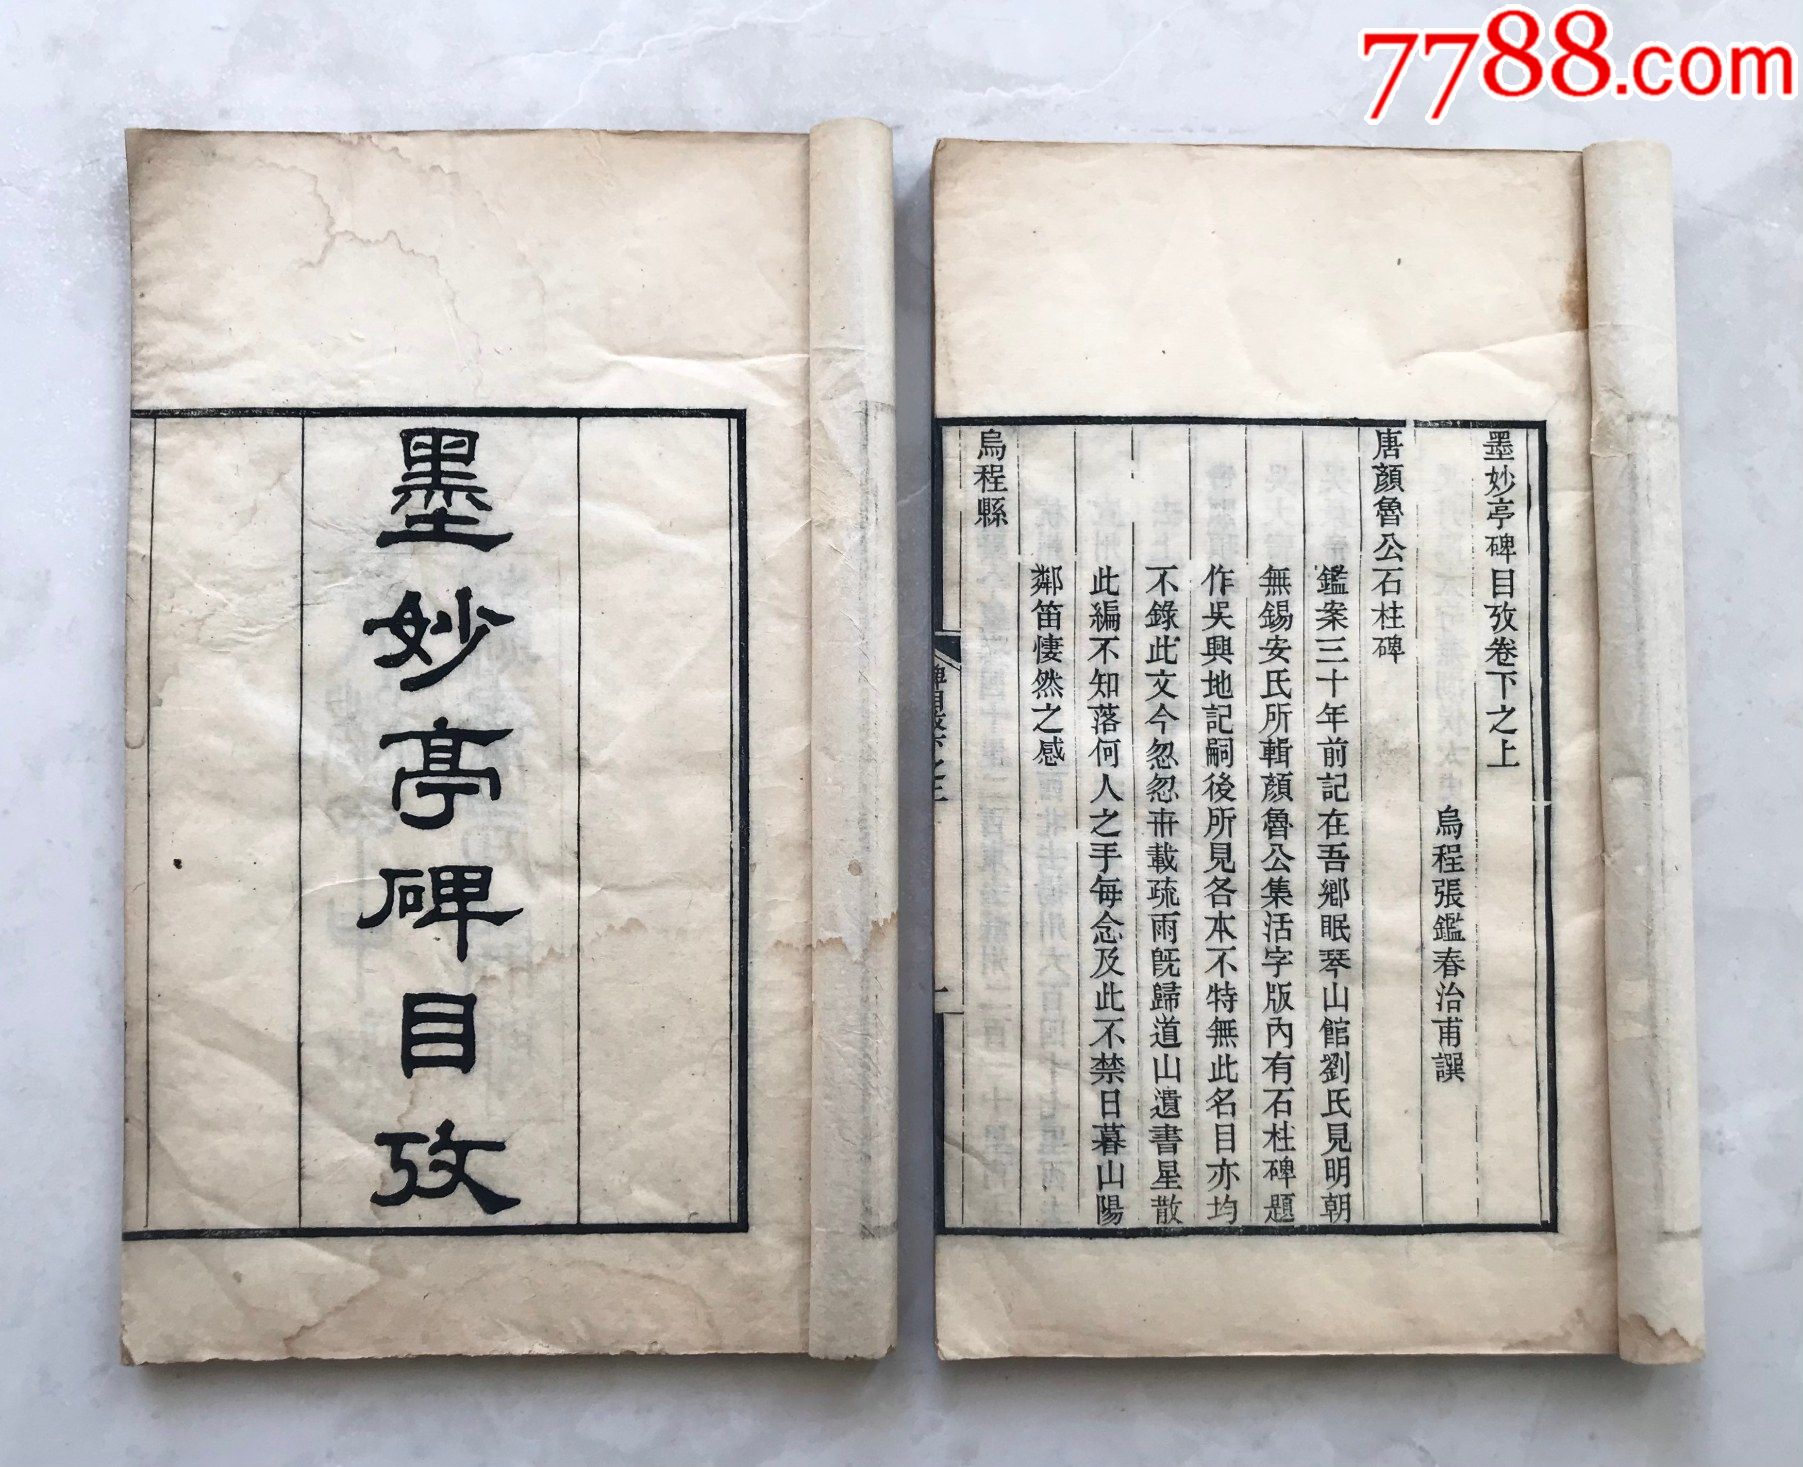 7788.com
墨妙亭碑目攷
墨妙亭碑目攷卷下之上
烏程張鑑春治甫譔
唐顏魯公石柱碑
鑑案三十年前記在吾鄉眠琴山館劉氏見明朝
無錫安氏所輯顏魯公集活字版內有石柱碑題
作吳興地記嗣後所見各本不特無此名目亦均
不錄此文今忽忽卌載疏雨旣歸道山遺書星散
此編不知落何人之手每念及此不禁日暮山陽
鄰笛悽然之感
烏程縣